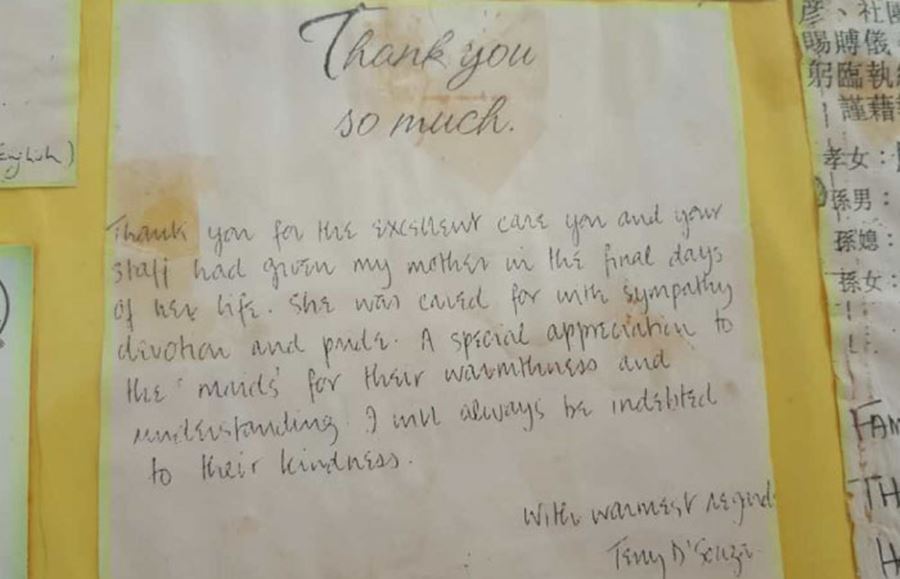 Thank you
so much.
Thank you for the excellent care you and your
staff had given my mother in the final days
of her life. She was cared for with sympathy
devotion and pride. A special appreciation to
the 'maids' for their warmthness and
understanding. I will always be indebted
to their kindness.
With warmest regards
English)
彦、社
賜賻儀
躬臨執
謹藉
孝女：
孫男：
孫媳：
孫女：
FAM
TH
H